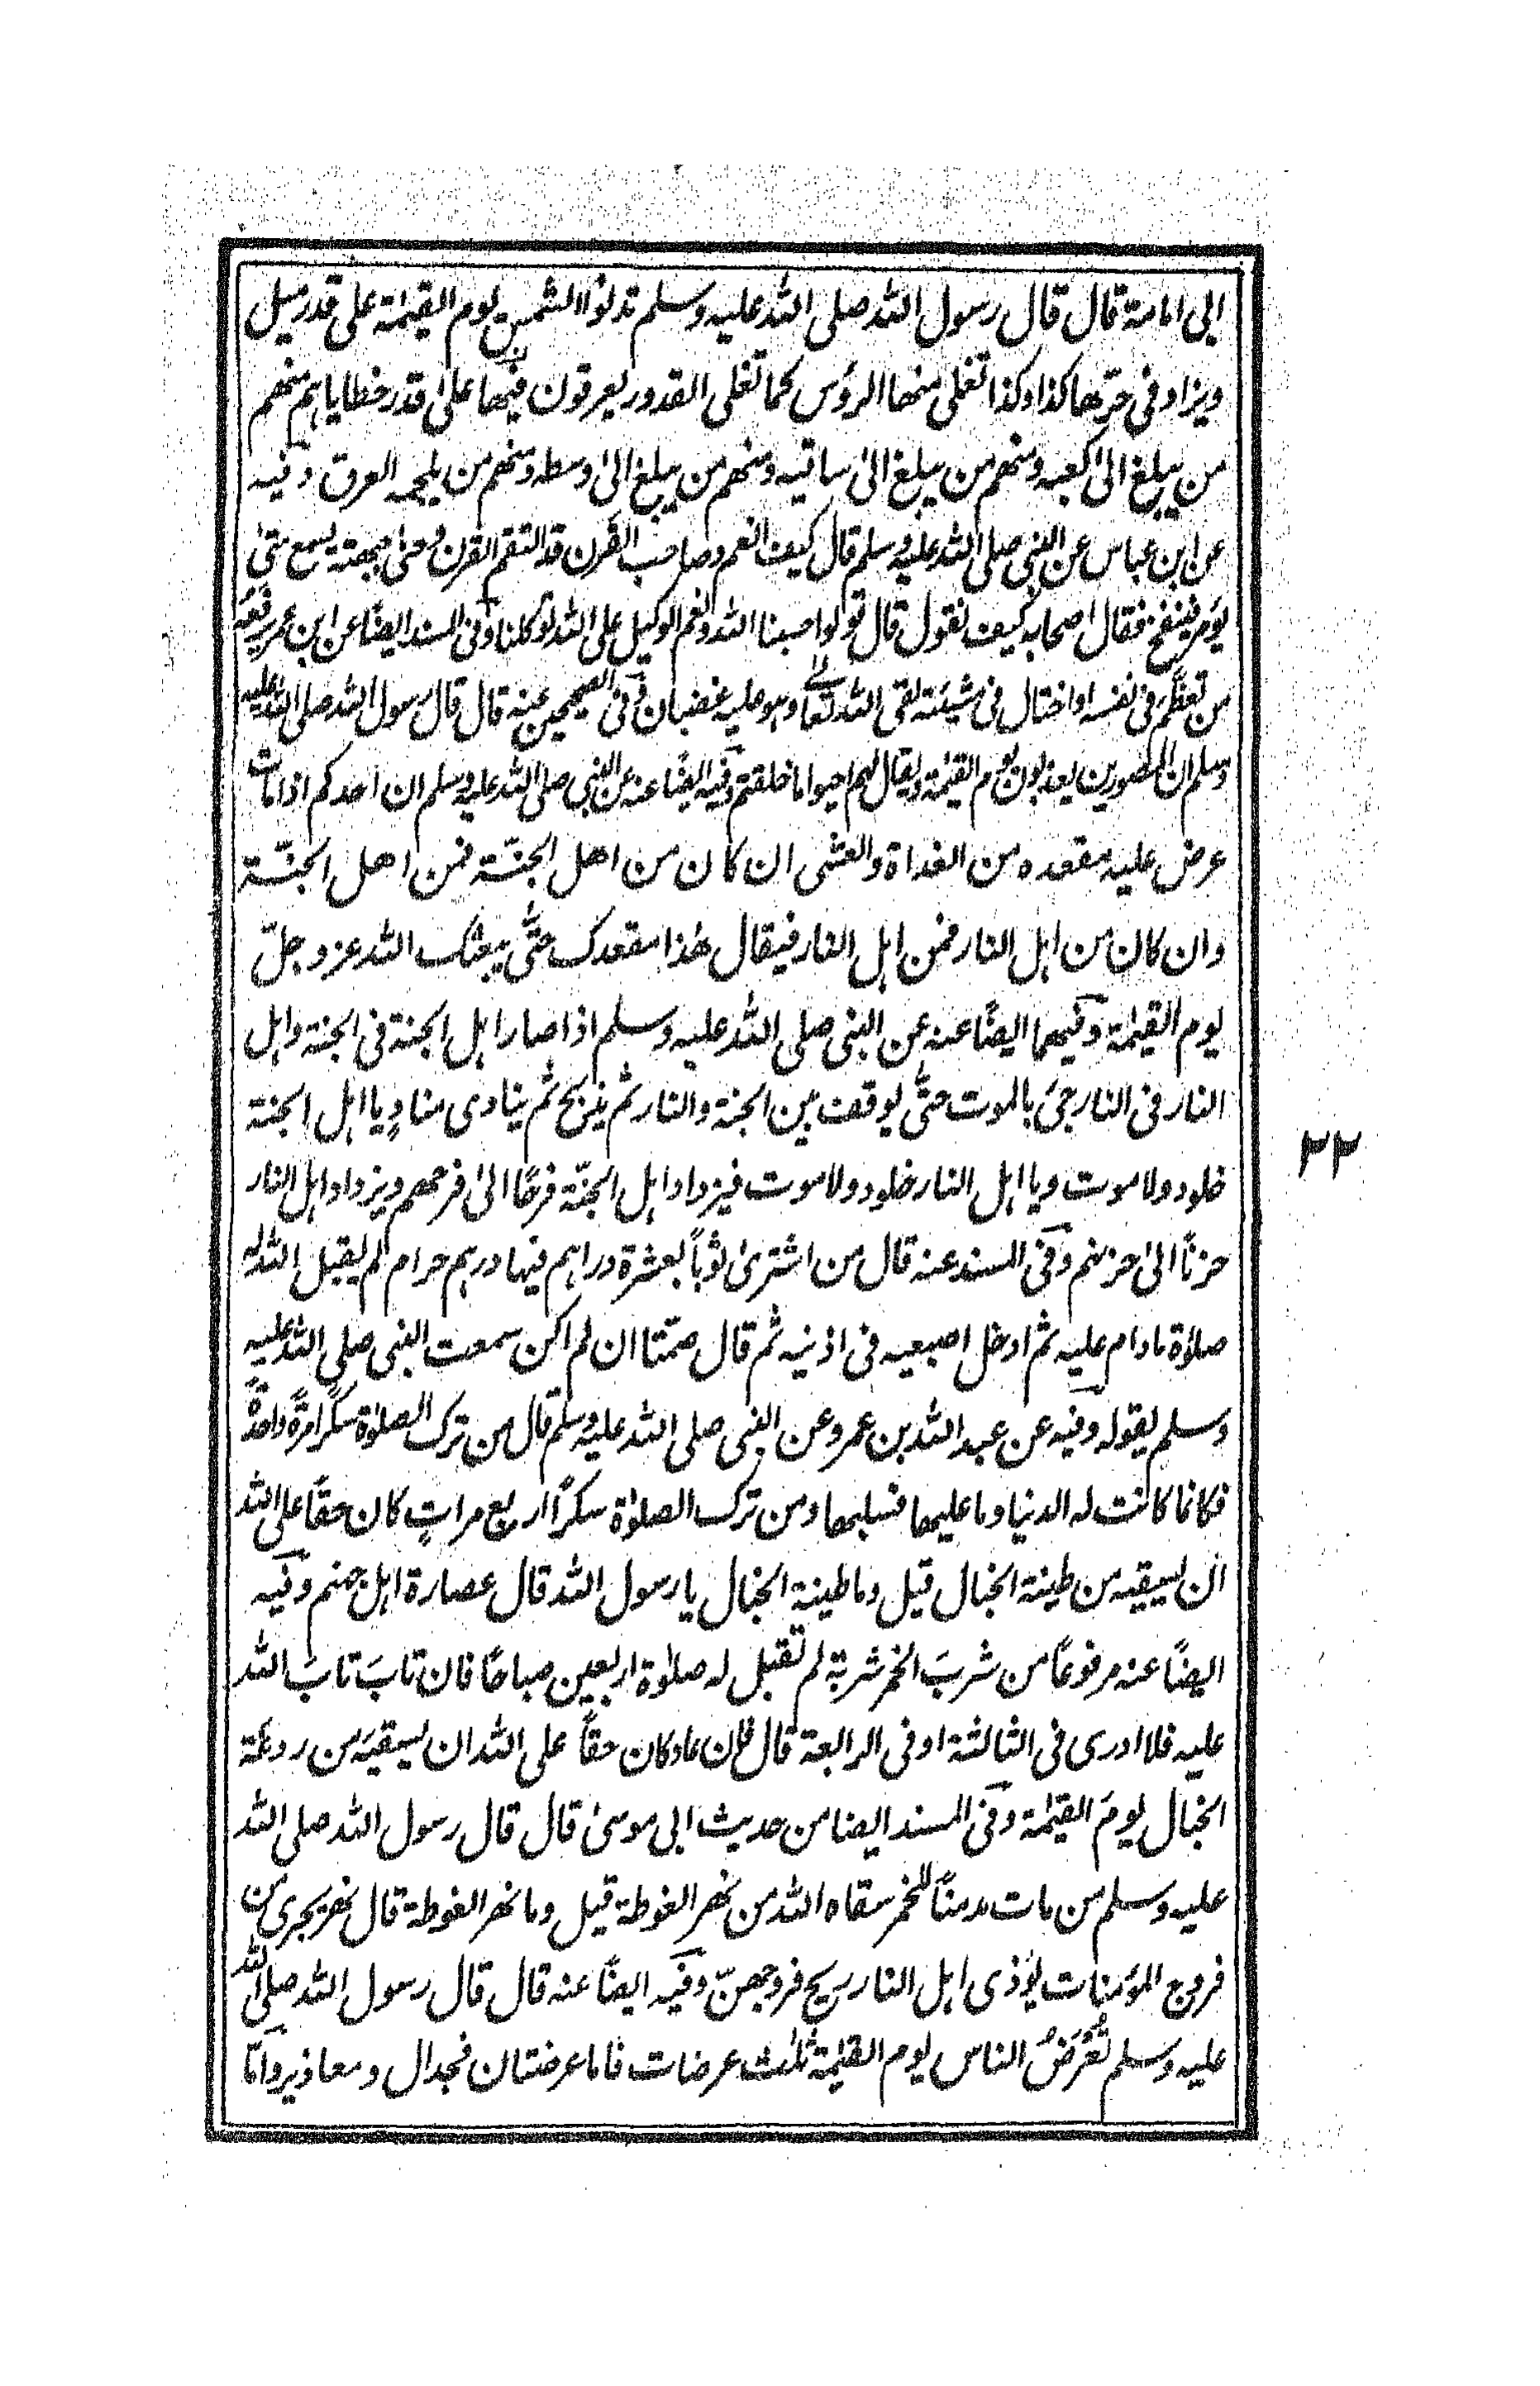 ابى امامة قال قال رسول الله صلى الله عليه وسلم تدنوا الشمس يوم القيمة على قدر ميل
ويزاد فى حرّها كذا وكذا تغلى منها الرؤس كما تغلى القدور يعرقون فيها على قدر خطاياهم منهم
من يبلغ الى كعبه ومنهم من يبلغ الى ساقيه ومنهم من يبلغ الى وسطه ومنهم من يلجمه العرق وفيه
عن ابن عباس عن النبى صلى الله عليه وسلم قال كيف انعم وصاحب القرن قد التقم القرن وحنى جبهته يسمع متى
يؤمر فينفخ فقال اصحابه كيف نقول قال قولوا حسبنا الله ونعم الوكيل على الله توكلنا وفى المسند ايضًا عن ابن عمر يرفعه
من تعظّم فى نفسه او اختال فى مشيئته لقى الله تعالے وهو عليه غضبان وفى الصحيحين عنه قال قال رسول الله صلى الله عليه
وسلم ان المصورين يعذبون يوم القيمة ويقال لهم احيوا ما خلقتم وفيه ايضًا عنه عن النبى صلى الله عليه وسلم ان احدكم اذا مات
عرض عليه مقعده من الغداة والعشى ان كان من اهل الجنّة فمن اهل الجنّة
وان كان من اهل النار فمن اهل النار فيقال هٰذا مقعدك حتّى يبعثك الله عز وجلّ
يوم القيمة وفيهما ايضًا عنه عن النبى صلى الله عليه وسلم اذا صار اهل الجنة فى الجنة واهل
النار فى النار جئ بالموت حتّى يوقف بين الجنة والنار ثم يذبح ثم ينادى منادٍ يا اهل الجنة
خلود ولا موت ويا اهل النار خلود ولا موت فيزداد اهل الجنّة فرحًا الى فرحهم ويزداد اهل النار
حزنًا الى حزنهم وفى المسند عنه قال من اشترى ثوبًا بعشرة دراهم فيها درهم حرام لم يقبل الله له
صلاة مادام عليه ثم ادخل اصبعيه فى اذنيه ثم قال صمّتا ان لم اكن سمعت النبى صلى الله عليه
وسلم يقوله وفيه عن عبد الله بن عمرو عن النبى صلى الله عليه وسلم قال من ترك الصلوٰة سكرًا مرةً واحدةً
فكانما كانت له الدنيا وما عليها فسلبها ومن ترك الصلوٰة سكرًا اربع مراتٍ كان حقًا على الله
ان يسقيه من طينة الخبال قيل وما طينة الخبال يا رسول الله قال عصارة اهل جهنم وفيه
ايضًا عنه مرفوعًا من شربَ الخمر شربة لم تقبل له صلوٰة اربعين صباحًا فان تابَ تابَ الله
عليه فلا ادرى فى الثالثة او فى الرابعة قال فان عاد كان حقًا على الله ان يسقيَه من ردغة
الخبال يومَ القيمٰة وفى المسند ايضا من حديث ابى موسىٰ قال قال رسول الله صلى الله
عليه وسلم من مات مدمنًا للخمر سقاه الله من نهر الغوطة قيل وما نهر الغوطة قال نهر يجرى من
فروج المؤمنات يؤذى اهل النار ريح فروجهنّ وفيه ايضًا عنه قال قال رسول الله صلى الله
عليه وسلم تُعْرَضُ الناس يوم القيٰمة ثلٰث عرضات فاما عرضتان فجدال ومعاذير وامّا
٢٢